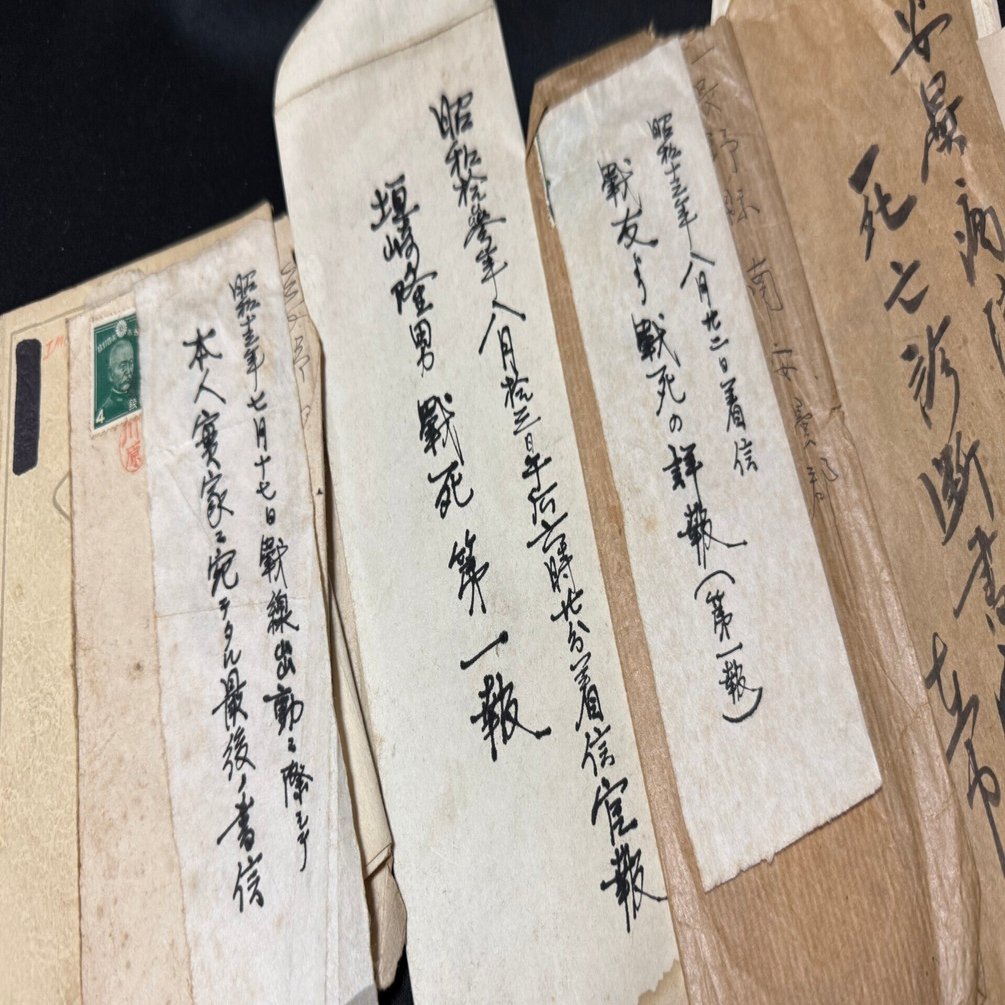 安曇病院
死亡診断書在中
長野縣 南安曇郡
昭和十三年八月廿二日着信
戰友より戰死の詳報(第一報)
昭和拾參年八月拾三日午后六時廿分着信官報
垣崎隆男 戰死 第一報
昭和十三年七月十七日戰線出動ニ際シテ
本人實家ニ宛テタル最後ノ書信
4
錢